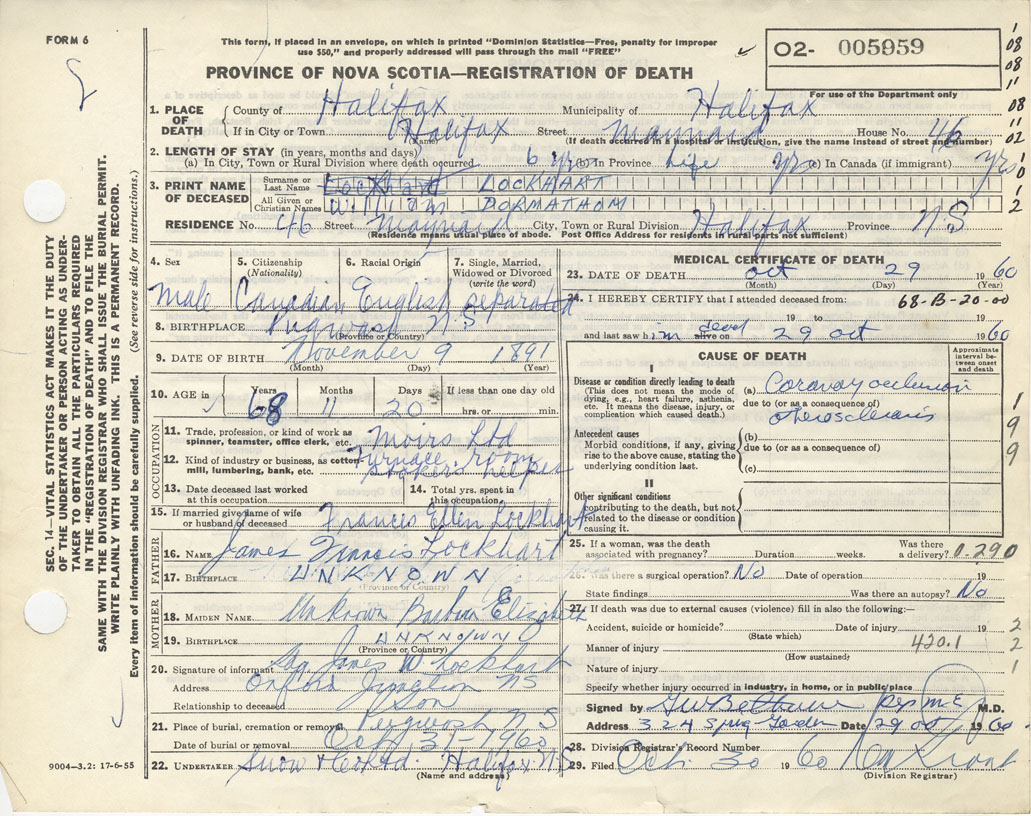 FORM 6
This form, if placed in an envelope, on which is printed "Dominion Statistics—Free, penalty for improper
use $50," and properly addressed will pass through the mail "FREE"
O2- 005959
For use of the Department only
PROVINCE OF NOVA SCOTIA—REGISTRATION OF DEATH
1. PLACE OF DEATH
County of Halifax Municipality of Halifax
If in City or Town Halifax Street Maynard House No. 46
(Name) (If death occurred in a hospital or institution, give the name instead of street and number)
2. LENGTH OF STAY (in years, months and days)
(a) In City, Town or Rural Division where death occurred 6 yrs (b) in Province Life yrs (c) In Canada (if immigrant) yrs
3. PRINT NAME OF DECEASED
Surname or Last Name Lockhard LOCKHART
All Given or Christian Names William
RESIDENCE No. 46 Street Maynard City, Town or Rural Division Halifax Province N.S
(Residence means usual place of abode. Post Office Address for residents in rural parts not sufficient)
4. Sex 5. Citizenship (Nationality) 6. Racial Origin 7. Single, Married, Widowed or Divorced (write the word)
Male Canadian English separated
8. BIRTHPLACE Pugwash N.S
(Province or Country)
9. DATE OF BIRTH November 9 1891
(Month) (Day) (Year)
10. AGE in Years 68 Months 11 Days 20 If less than one day old hrs. or min.
OCCUPATION
11. Trade, profession, or kind of work as spinner, teamster, office clerk, etc. Moirs Ltd
12. Kind of industry or business, as cotton-mill, lumbering, bank, etc. Furnace room helper
13. Date deceased last worked at this occupation
14. Total yrs. spent in this occupation
15. If married give name of wife or husband of deceased Frances Ellen Lockhart
FATHER
16. NAME James Francis Lockhart
17. BIRTHPLACE UNKNOWN
(Province or Country)
MOTHER
18. MAIDEN NAME. Unknown Barbara Elizabeth
19. BIRTHPLACE UNKNOWN
(Province or Country)
20. Signature of informant James W Lockhart
Address Oxford Junction NS
Relationship to deceased Son
21. Place of burial, cremation or removal Pugwash N S
Date of burial or removal Oct 31-1960
22. UNDERTAKER Snow & Co Ltd. Halifax N.S
(Name and address)
MEDICAL CERTIFICATE OF DEATH
23. DATE OF DEATH oct 29 1960
(Month) (Day) (Year)
24. I HEREBY CERTIFY that I attended deceased from: 68-B-20-00
19 to 19
and last saw him dead alive on 29 oct 1960
CAUSE OF DEATH
Approximate interval between onset and death
I
Disease or condition directly leading to death
(This does not mean the mode of dying, e.g., heart failure, asthenia, etc. It means the disease, injury, or complication which caused death.)
(a) Coronary occlusion
due to (or as a consequence of)
Antecedent causes
Morbid conditions, if any, giving rise to the above cause, stating the underlying condition last.
(b)
due to (or as a consequence of)
(c)
II
Other significant conditions
contributing to the death, but not related to the disease or condition causing it.
25. If a woman, was the death associated with pregnancy? Duration weeks. Was there a delivery? 0-290
26. Was there a surgical operation? No Date of operation 19
State findings Was there an autopsy? No
27. If death was due to external causes (violence) fill in also the following:—
Accident, suicide or homicide? Date of injury 19
(State which)
Manner of injury 420.1
(How sustained)
Nature of injury
Specify whether injury occurred in industry, in home, or in public place
Signed by M.D.
Address 324 Spring Garden Date 29 oct 1960
28. Division Registrar's Record Number
29. Filed Oct. 30 1960
(Division Registrar)
SEC. 14—VITAL STATISTICS ACT MAKES IT THE DUTY
OF THE UNDERTAKER OR PERSON ACTING AS UNDER-
TAKER TO OBTAIN ALL THE PARTICULARS REQUIRED
IN THE "REGISTRATION OF DEATH" AND TO FILE THE
SAME WITH THE DIVISION REGISTRAR WHO SHALL ISSUE THE BURIAL PERMIT.
WRITE PLAINLY WITH UNFADING INK. THIS IS A PERMANENT RECORD.
Every item of information should be carefully supplied. (See reverse side for instructions.)
9004—3.2: 17-6-55
1
08
08
11
08
11
02
1
0
1
2
1
9
9
2
2
1